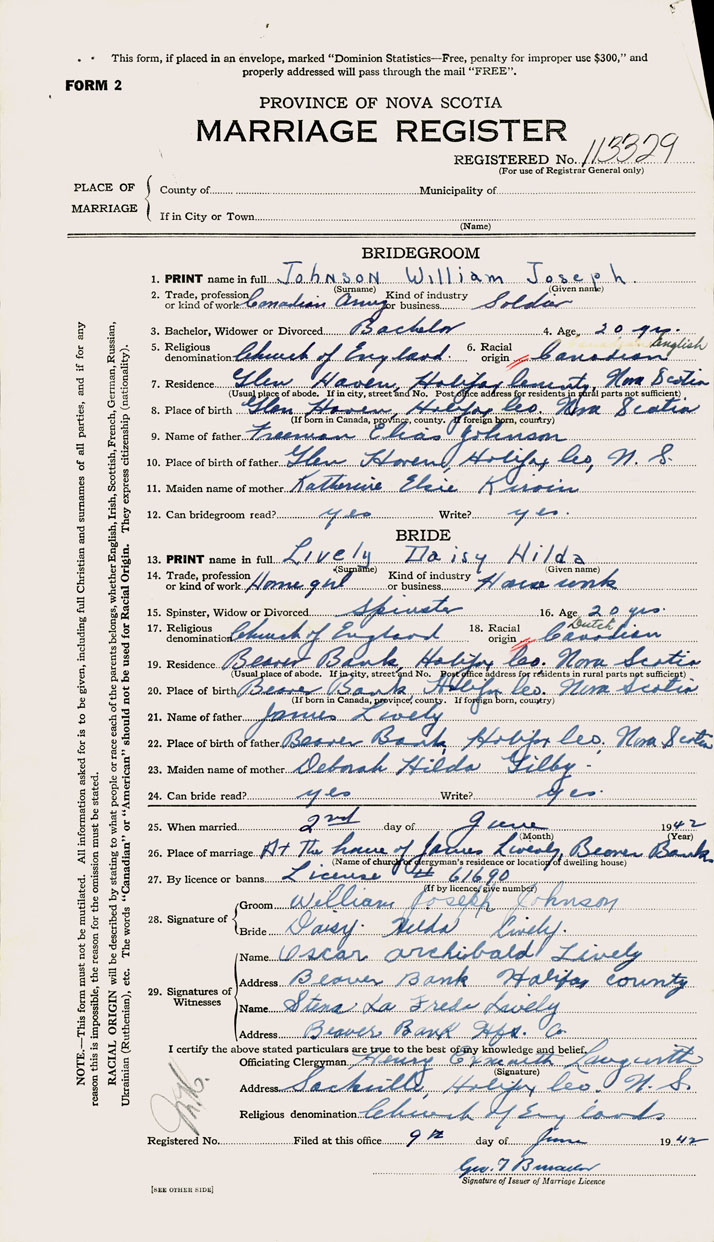 This form, if placed in an envelope, marked "Dominion Statistics—Free, penalty for improper use $300," and
properly addressed will pass through the mail "FREE".
FORM 2
PROVINCE OF NOVA SCOTIA
MARRIAGE REGISTER
REGISTERED No. 113329
(For use of Registrar General only)
PLACE OF MARRIAGE
County of Municipality of
If in City or Town
(Name)
BRIDEGROOM
1. PRINT name in full Johnson William Joseph.
(Surname) (Given name)
2. Trade, profession or kind of work Canadian Army Kind of industry or business. Soldier
3. Bachelor, Widower or Divorced Bachelor 4. Age, 20 yrs.
5. Religious denomination Church of England. 6. Racial origin Canadian English
7. Residence Glen Haven, Halifax County, Nova Scotia
(Usual place of abode. If in city, street and No. Post office address for residents in rural parts not sufficient)
8. Place of birth Glen Haven, Halifax Co. Nova Scotia
(If born in Canada, province, county. If foreign born, country)
9. Name of father Freeman Elias Johnson
10. Place of birth of father Glen Haven, Halifax Co, N. S.
11. Maiden name of mother Katherine Elsie
12. Can bridegroom read? yes Write? yes.
BRIDE
13. PRINT name in full Lively Daisy Hilda
(Surname) (Given name)
14. Trade, profession or kind of work Home girl Kind of industry or business. House work
15. Spinster, Widow or Divorced Spinster 16. Age 20 yrs.
17. Religious denomination Church of England 18. Racial origin Canadian Dutch
19. Residence Beaver Bank, Halifax Co. Nova Scotia
(Usual place of abode. If in city, street and No. Post office address for residents in rural parts not sufficient)
20. Place of birth Beaver Bank, Halifax Co. Nova Scotia
(If born in Canada, province, county. If foreign born, country)
21. Name of father James Lively
22. Place of birth of father Beaver Bank, Halifax Co, Nova Scotia
23. Maiden name of mother Deborah Hilda Gilby -
24. Can bride read? yes Write? yes.
25. When married 2nd day of June 1942
(Month) (Year)
26. Place of marriage At the house of James Lively, Beaver Bank
(Name of church or clergyman's residence or location of dwelling house)
27. By licence or banns. License # 61690
(If by licence, give number)
28. Signature of
Groom William Joseph Johnson
Bride Daisy Hilda Lively.
29. Signatures of Witnesses
Name Oscar Archibald Lively
Address Beaver Bank Halifax County
Name Stena La Freda Lively
Address Beaver Bank Hfx. Co
I certify the above stated particulars are true to the best of my knowledge and belief,
Officiating Clergyman Henry
(Signature)
Address Sackville, Halifax Co. N. S.
Religious denomination Church of England
Registered No. Filed at this office 9th day of June 1942
Geo. T
Signature of Issuer of Marriage Licence
[SEE OTHER SIDE]
NOTE.—This form must not be mutilated. All information asked for is to be given, including full Christian and surnames of all parties, and if for any
reason this is impossible, the reason for the omission must be stated.
RACIAL ORIGIN will be described by stating to what people or race each of the parents belongs, whether English, Irish, Scottish, French, German, Russian,
Ukrainian (Ruthenian), etc. The words "Canadian" or "American" should not be used for Racial Origin. They express citizenship (nationality).